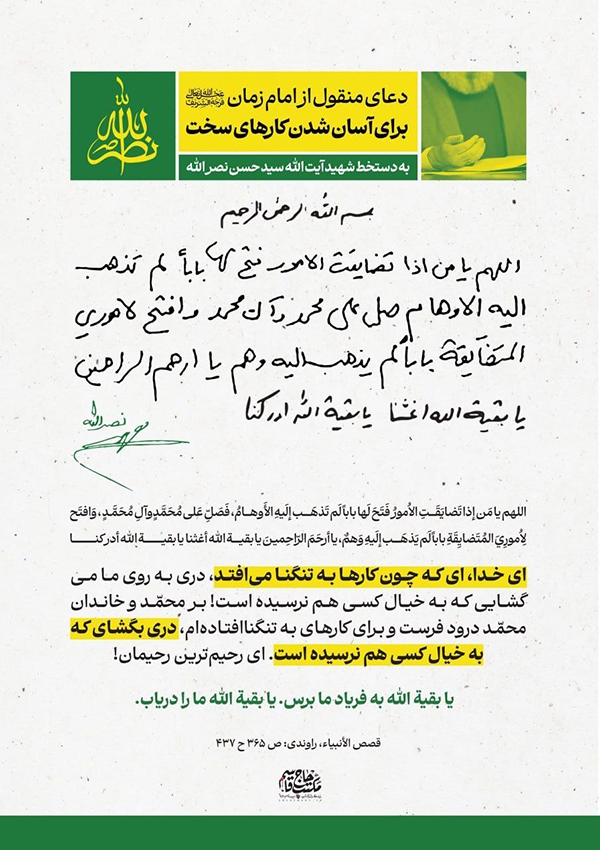 دعای منقول از امام زمان عجل‌الله‌تعالی فرجه‌الشریف
برای آسان شدن کارهای سخت
به دستخط شهید آیت الله سید حسن نصر الله
نصر الله
بسم الله الرحمن الرحیم
اللهم یا من اذا تضایقت الامور فتح لها باباً لم تذهب
الیه الاوهام صل علی محمد وآل محمد وافتح لاموري
المتضایقة باباً لم یذهب الیه وهم یا ارحم الراحمین
یا بقیة الله اغثنا یا بقیة الله ادرکنا
نصر الله
اللهم یا مَن إذا تَضایَقَتِ الأُمورُ فَتَحَ لَها بابا لَم تَذهَب إلَیهِ الأَوهامُ، فَصَلِّ عَلی مُحَمَّدٍ وآلِ مُحَمَّدٍ، وَافتَح
لِأُمورِيَ المُتَضایِقَةِ بابا لَم یَذهَب إلَیهِ وَهمٌ، یا أرحَمَ الرّاحِمینَ یا بقیة الله أغثنا یا بقیة الله أدرکنا
ای خدا، ای که چون کارها به تنگنا می‌افتد، دری به روی ما می
گشایی که به خیال کسی هم نرسیده است! بر محمّد و خاندان
محمّد درود فرست و برای کارهای به تنگنا افتاده‌ام، دری بگشای که
به خیال کسی هم نرسیده است. ای رحیم‌ترین رحیمان!
یا بقیة الله به فریاد ما برس. یا بقیة الله ما را دریاب.
قصص الأنبیاء، راوندی: ص ۳۶۵ ح ۴۳۷
مکتب حاج قاسم